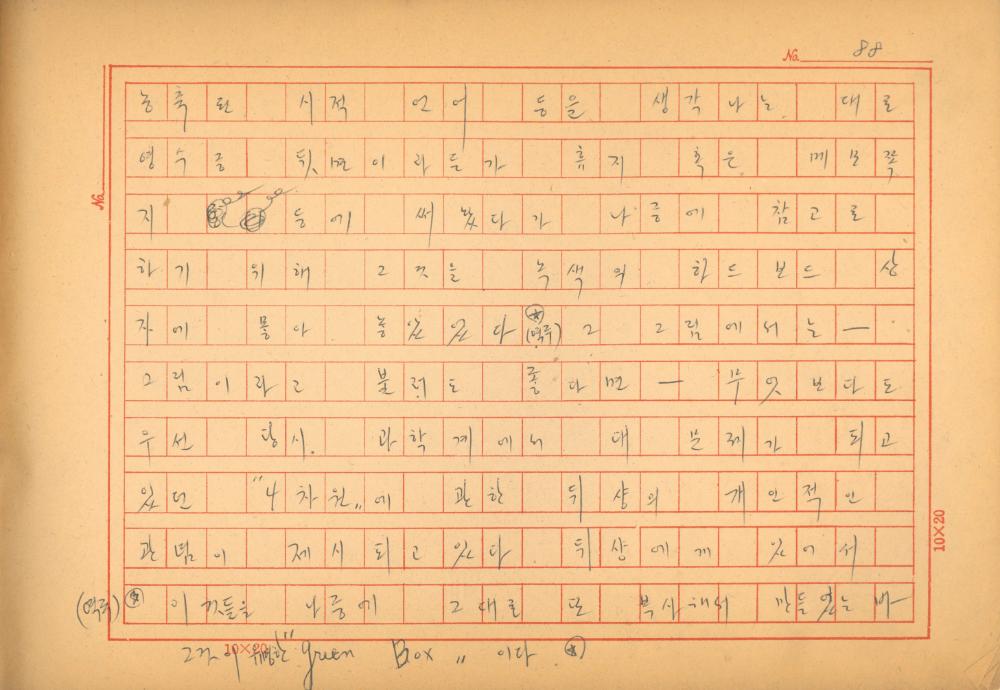 No. 88
농축된 시적 언어 등을 생각나는 대로
영수증 뒷면이라든가 휴지 혹은 메모쪽
지 등에 써 놨다가 나중에 참고로
하기 위해 그것을 녹색의 하드보드 상
자에 몰아 놓았었다 (역주) 그 그림에서는 —
그림이라고 불러도 좋다면 — 무엇보다도
우선 당시 과학계에서 대 문제가 되고
있던 "4차원"에 관한 뒤샹의 개인적인
관념이 제시되고 있다 뒤샹에게 있어서
(역주) 이것들을 나중에 그대로 또 복사해서 만들었는 바
그것이 유명한 "Green Box" 이다.
No.
10×20
10×20